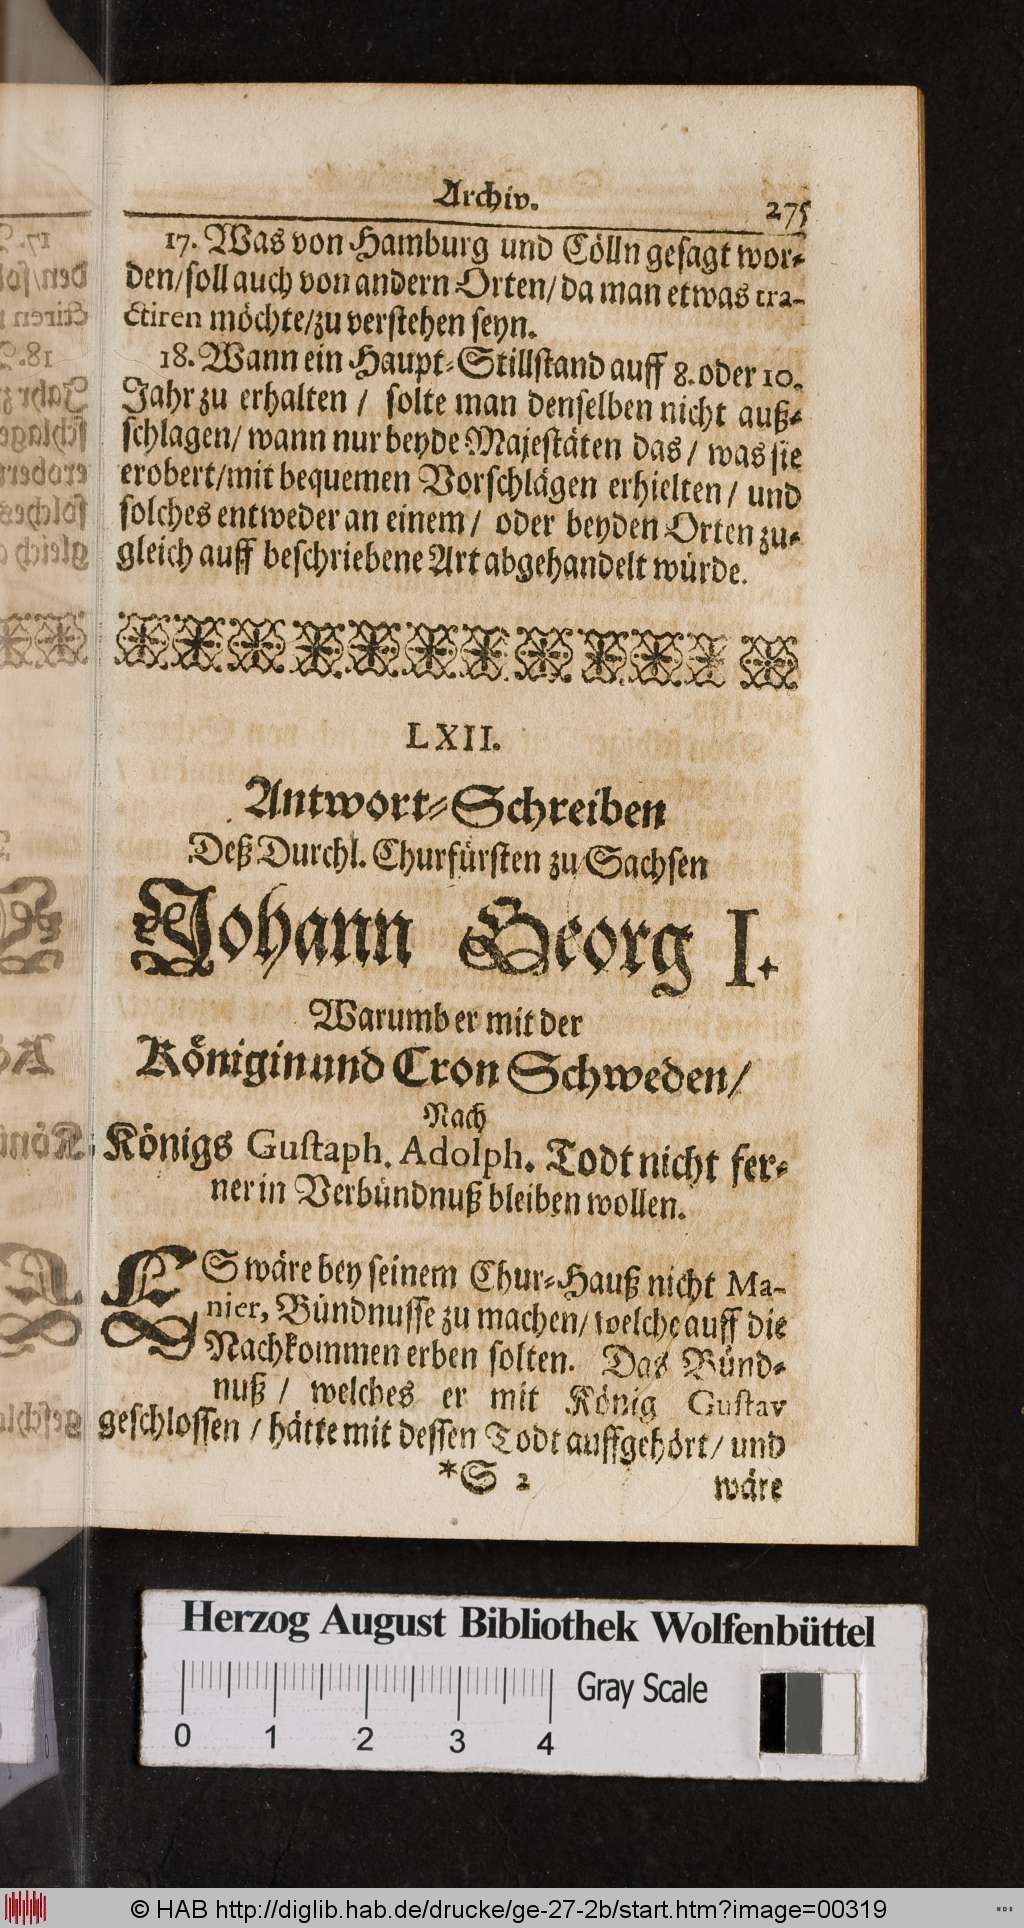 Archiv.
275
17. Was von Hamburg und Cölln gesagt wor-
den/soll auch von andern Orten/da man etwas tra-
ctiren möchte/zu verstehen seyn.
18. Wann ein Haupt-Stillstand auff 8. oder 10.
Jahr zu erhalten / solte man denselben nicht auß-
schlagen/ wann nur beyde Majestäten das / was sie
erobert/mit bequemen Vorschlägen erhielten / und
solches entweder an einem / oder beyden Orten zu-
gleich auff beschriebene Art abgehandelt würde.
LXII.
Antwort-Schreiben
Deß Durchl. Churfürsten zu Sachsen
Johann Georg I.
Warumb er mit der
Königin und Cron Schweden/
Nach
Königs Gustaph. Adolph. Todt nicht fer-
ner in Verbündnuß bleiben wollen.
ES wäre bey seinem Chur-Hauß nicht Ma-
nier, Bündnusse zu machen/ welche auff die
Nachkommen erben solten. Das Bünd-
nuß / welches er mit König Gustav
geschlossen / hätte mit dessen Todt auffgehört/ und
*S 2
wäre
Herzog August Bibliothek Wolfenbüttel
Gray Scale
0 1 2 3 4
© HAB http://diglib.hab.de/drucke/ge-27-2b/start.htm?image=00319